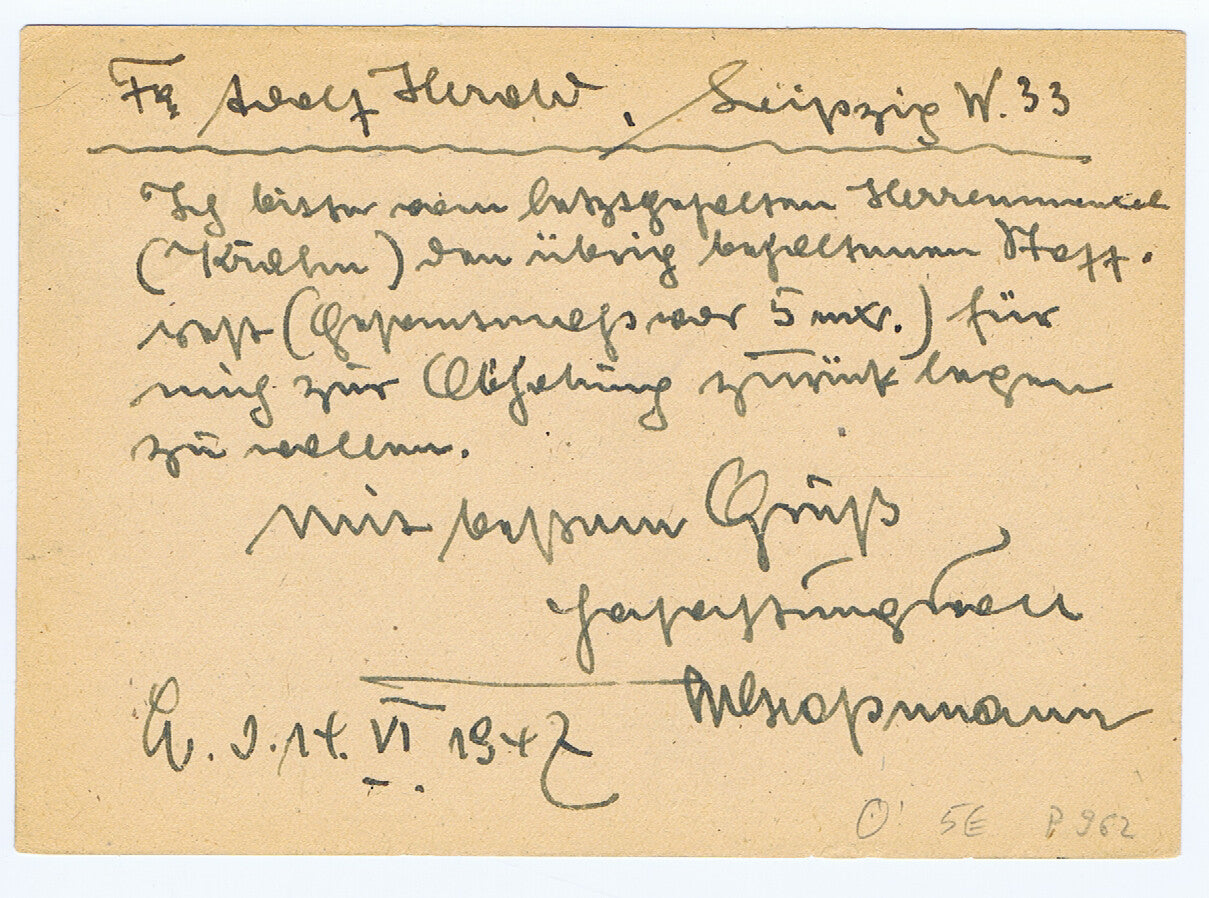 Fa Adolf Herold, Leipzig W. 33
Ich bitte vom letztgehalten Herrenmantel
() den übrig behaltenen Stoff-
rest (Gesamtmaß war 5 mtr.) für
mich zur Abholung zurück legen
zu wollen.
Mit bestem Gruß
hochachtungsvoll
Großmann
L. d. 14. VI 1947
O' 5E P 962